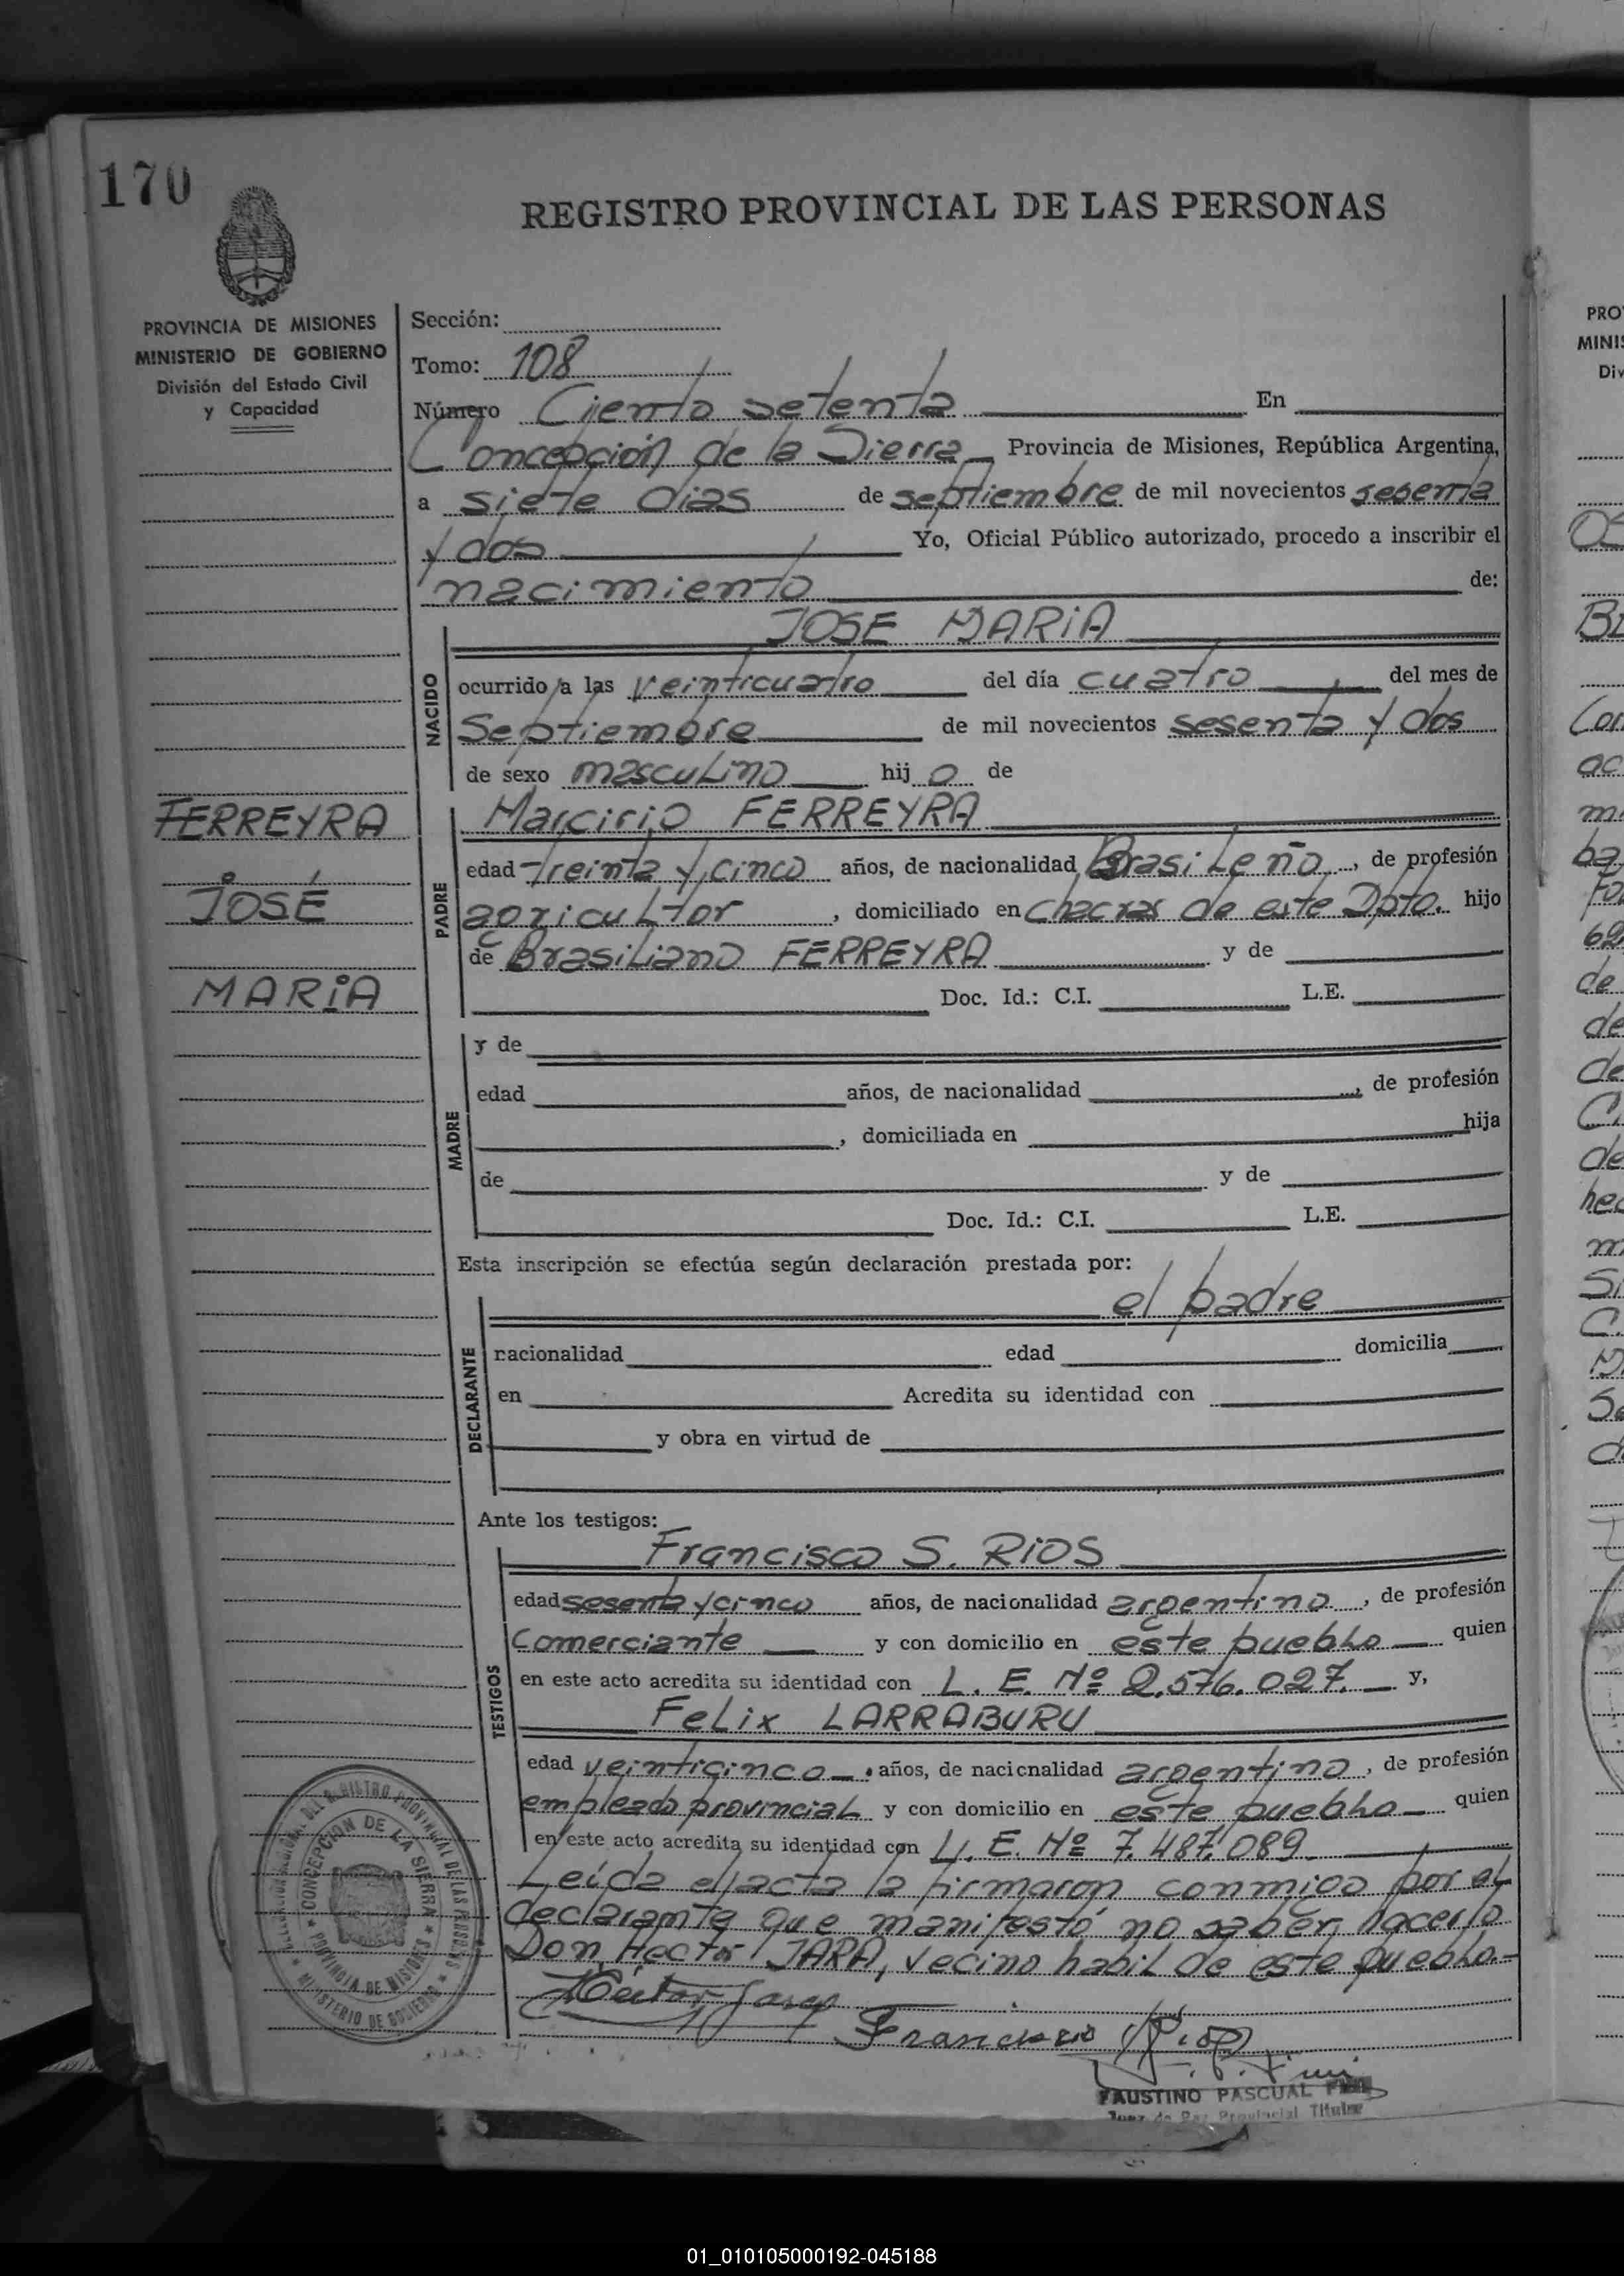 170
REGISTRO PROVINCIAL DE LAS PERSONAS
PROVINCIA DE MISIONES
MINISTERIO DE GOBIERNO
División del Estado Civil
y Capacidad
Sección:
Tomo: 108
Número Ciento setenta En
Concepción de la Sierra Provincia de Misiones, República Argentina,
a siete dias de septiembre de mil novecientos sesenta
y dos Yo, Oficial Público autorizado, procedo a inscribir el
nacimiento de:
NACIDO
JOSE MARIA
ocurrido a las veinticuatro del día cuatro del mes de
Septiembre de mil novecientos sesenta y dos
de sexo masculino hij o de
FERREYRA
JOSÉ
MARIA
PADRE
Marcirio FERREYRA
edad treinta y cinco años, de nacionalidad Brasileño, de profesión
agricultor, domiciliado en chacras de este Dpto. hijo
de Brasiliano FERREYRA y de
Doc. Id.: C.I. L.E.
MADRE
y de
edad años, de nacionalidad , de profesión
, domiciliada en hija
de y de
Doc. Id.: C.I. L.E.
Esta inscripción se efectúa según declaración prestada por:
DECLARANTE
el padre
nacionalidad edad domicilia
en Acredita su identidad con
y obra en virtud de
Ante los testigos:
TESTIGOS
Francisco S. RIOS
edad sesenta y cinco años, de nacionalidad argentino, de profesión
comerciante y con domicilio en este pueblo quien
en este acto acredita su identidad con L. E. Nº 2.576.027. y,
Felix LARRABURU
edad veinticinco años, de nacionalidad argentino, de profesión
empleado provincial y con domicilio en este pueblo quien
en este acto acredita su identidad con L. E. Nº 7.487.089
Leída el acta la firmaron conmigo por el
declarante que manifestó no saber hacerlo
Don Hector JARA, vecino habil de este pueblo.=
CONCEPCION DE LA SIERRA
PROVINCIA DE MISIONES
MINISTERIO DE GOBIERNO
Francisco Rios
FAUSTINO PASCUAL
Juez de Paz Provincial Titular
01_010105000192-045188